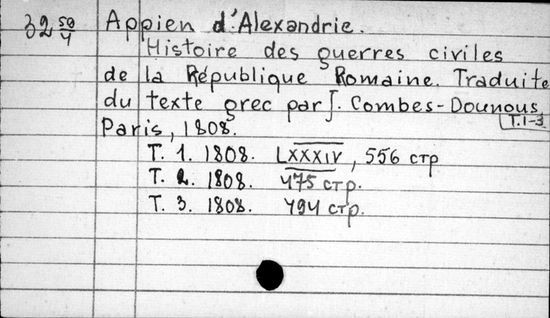 32 50/4 Appien d'Alexandrie.
Histoire des guerres civiles
de la République Romaine. Traduite
du texte grec par J. Combes-Dounous
Paris, 1808. T.1-3
T. 1. 1808. LXXXIV, 556 стр
T. 2. 1808. 475 стр.
T. 3. 1808. 494 стр.